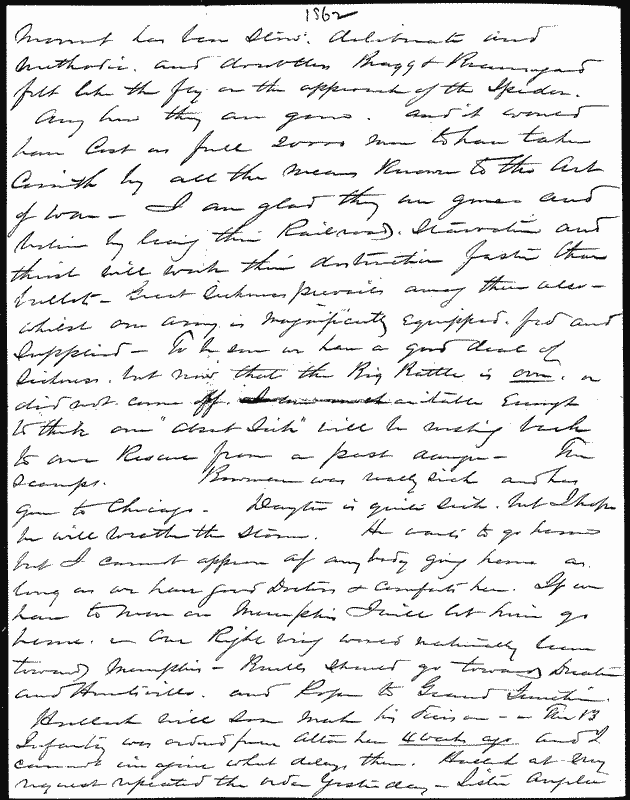 1862
has been slow. deliberate and
methodic. and doubtless Bragg & Beauregard
felt like the fly on the approach of the Spider.
Any how they are gone. and it would
have Cost us full 20000 men to have taken
Corinth by all the means Known to the Art
of War - I am glad they are gone and
believe by living their Railroads. Starvation and
thirst will work their destruction faster than
bullets - Great Sickness prevails among them also -
whilst our army is Magnificently Equipped. fed and
Supplied - To be sure we have a good deal of
Sickness. but now that the Big Battle is over. or
did not come off
to think our "absent Sick" will be rushing back
to our Rescue from a past danger - The
Scamps. Bowman was really sick and has
gone to Chicago - Dayton is quite sick. but I hope
he will weather the Storm. He wants to go home
but I cannot approve of any body going home as
long as we have good Doctors & comforts here. If we
have to move on Memphis I will let him go
home. - Our Right Wing would naturally
towards Memphis - Buells should go towards Decatur
and Huntsville. and Pope to Grand Junction.
Halleck will soon make his decision - The 13
Infantry was ordered from Alton here 4 weeks ago and I
cannot imagine what delays them. Halleck at my
request repeated the order Yesterday -